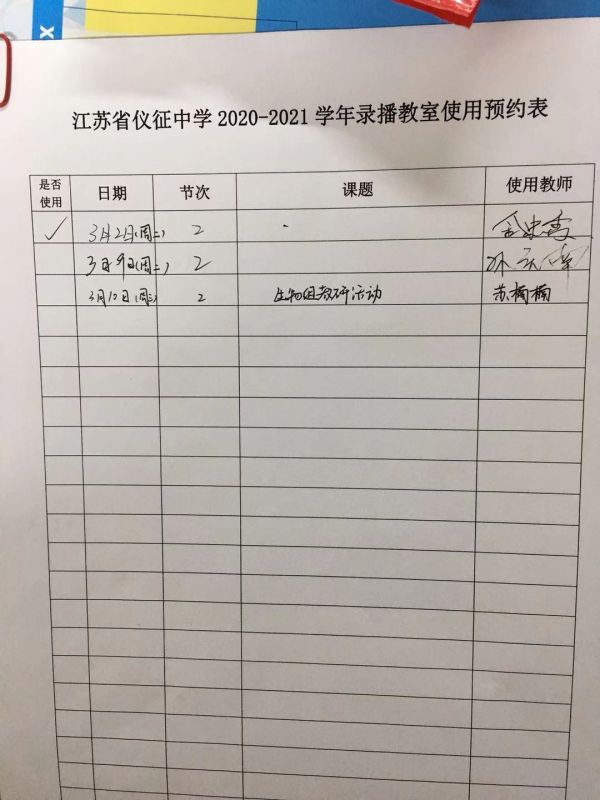 X
江苏省仪征中学2020-2021学年录播教室使用预约表
是否使用 日期 节次 课题 使用教师
✓ 3月2日(周二) 2
3月9日(周二) 2
3月10日(周三) 2 生物组教研活动 苏楠楠